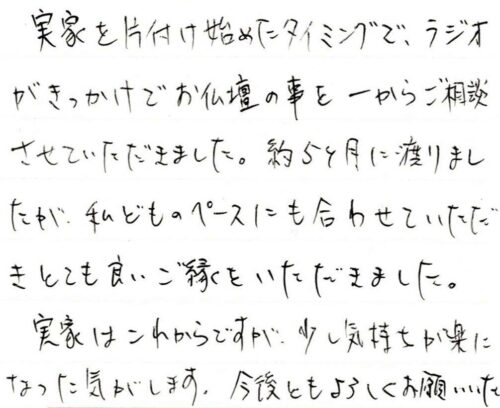 実家を片付け始めたタイミングで、ラジオ
がきっかけでお仏壇の事を一からご相談
させていただきました。約5ヶ月に渡りまし
たが、私どものペースにも合わせていただ
きとても良いご縁をいただきました。
実家はこれからですが、少し気持ちが楽に
なった気がします。今後ともよろしくお願いいた